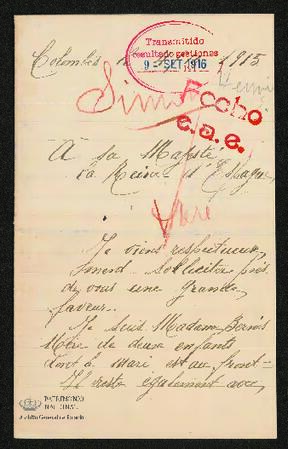 Transmitido
resultado gestiones
9 - SET 1916
Colombes 1915
Simon
Fecho
c.a.e.
A sa Majesté
la Reine d'Espagne,
Je viens respectueu,
sement solliciter près
de vous une grande,
faveur..
Je suis Madame
Mère de deux enfants
dont le Mari est au front =
Il reste également avec,
PATRIMONIO
NACIONAL
Archivo General de Palacio